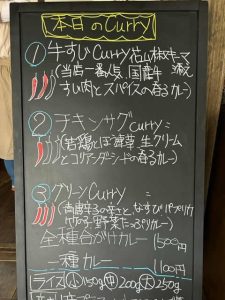 本日のCurry
①牛すじCurry
(当店一番人気 国産牛
すじ肉とスパイスの香るカレー)
②チキンサグcurry:
(若鶏とほうれん草、生クリーム
とコリアンダーシードの香るカレー)
③グリーンCurry:
(青唐辛子の辛さと、なすびパプリカ
竹の子野菜たっぷりカレー)
全種合がけカレー 1500円
一種カレー 1100円
ライス(小)150g(中)200g(大)250g